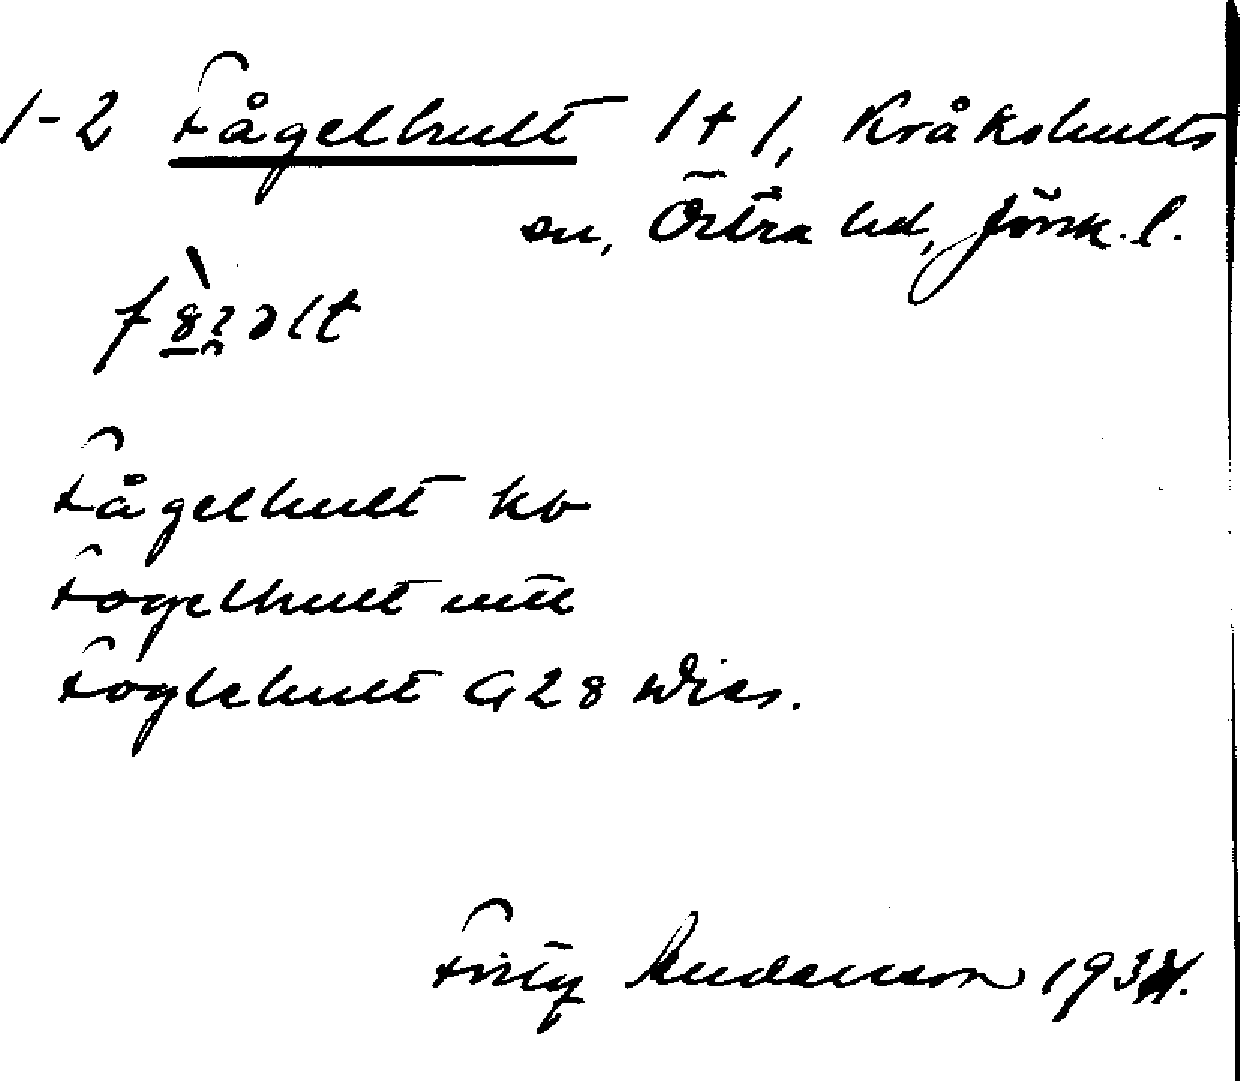 1-2 Fågelhult 1+1, Kråkshults
sn, Östra hd, Jönk. l.
Fågelhult kb
Fogelhult
Foglehult G 28 Wies.
Fritz Anderson 1934.